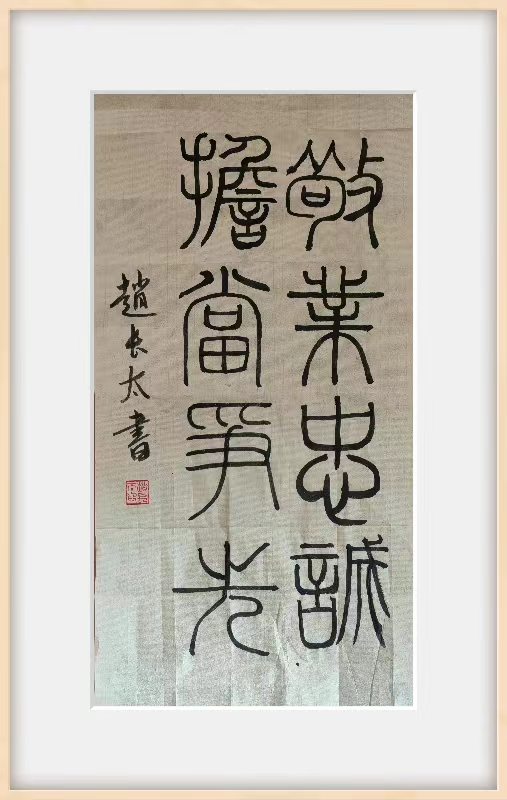 敬業忠誠
擔當爭先
趙長太書